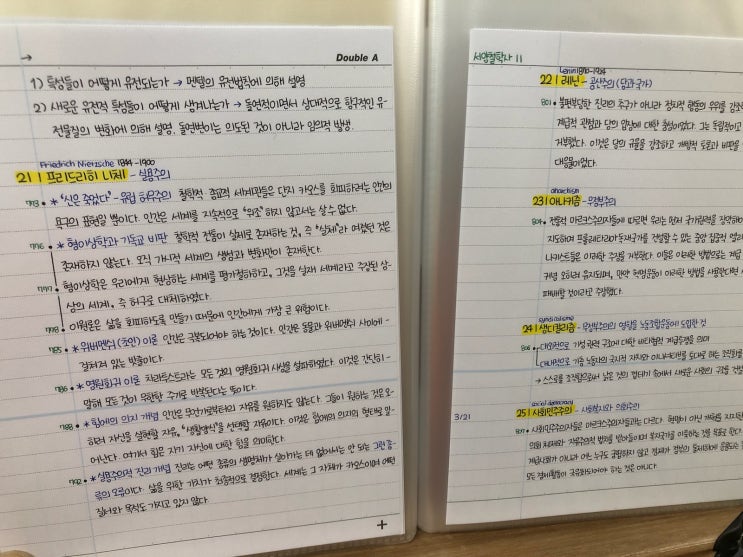 Double A
1) 특성들이 어떻게 유전되는가 → 멘델의 유전법칙에 의해 설명
2) 새로운 유전적 특성들이 어떻게 생겨나는가 → 돌연적이면서 상대적으로 항구적인 유-
전물질의 변화에 의해 설명. 돌연변이는 의도된 것이 아니라 임의적 발생.
Friedrich Nietzsche 1844-1900
21 | 프리드리히 니체 - 실용주의
* "신은 죽었다" - 유럽 허무주의 철학적·종교적 세계관들은 단지 카오스를 회피하려는 인간의
욕구의 표현일 뿐이다. 인간은 세계를 지속적으로 "위조"하지 않고서는 살 수 없다.
776 * 형이상학과 기독교 비판 철학적 전통이 실제로 존재하는 것, 즉 "실체"라 여겼던 것은
존재하지 않는다. 오직 가시적 세계의 생성과 변화만이 존재한다.
777 형이상학은 우리에게 현상하는 세계를 평가절하하고, 그것을 실재 세계라고 주장된 상-
상의 세계, 즉 허구로 대체하였다.
778 이원론은 삶을 회피하도록 만들기 때문에 인간에게 가장 큰 위험이다.
785 * 위버멘쉬(초인) 이론 인간은 극복되어야 하는 것이다. 인간은 동물과 위버멘쉬 사이에
걸쳐져 있는 밧줄이다.
786 * 영원회귀 이론 차라투스트라는 모든 것의 영원회귀 사상을 설파하였다. 이것은 간단히
말해 모든 것이 무한한 주기로 반복된다는 뜻이다.
788 * 힘에의 의지 개념 인간은 무언가로부터의 자유를 원하지도 않는다. 그들이 원하는 것은 오
히려 자신을 실현할 자유, "생활양식"을 선택할 자유이다. 이것은 힘에의 의지의 형태로 일
어난다. 여기서 힘은 자기 자신에 대한 힘을 의미한다.
792 * 실용주의적 진리 개념 진리는 어떤 종류의 생명체가 살아가는 데 없어서는 안 되는 그런 종-
류의 오류이다. 삶을 위한 가치가 최종적으로 결정한다. 세계는 그 자체가 카오스이며 어떤
질서와 목적도 가지고 있지 않다.
서양철학사 11
Lenin 1870-1924
22 | 레닌 - 공산주의 (당과 국가)
801 • 불편부당한 진리의 추구가 아니라 정치적 행동의 우위를 강조
계급적 관점과 당의 입장에 대한 충성이었다. 그는 독립적이고
거부했다. 이것은 당의 규율을 강조하고 개방적 토론과 비판을
대응물이었다.
anarchism
23 | 아나키즘 - 무정부주의
804 • 전통적 마르크스주의자들에 따르면 우리는 먼저 국가권력을 장악하여
지도하여 프롤레타리아 독재국가를 건설할 수 있는 중앙 집중적
나키스트들은 이러한 주장을 거부했다. 이들은 이러한 방법으로는 계급
오히려 유지되며, 만약 혁명운동이 이러한 방법을 사용한다면
패배할 것이라고 주장했다.
syndicalisme
24 | 생디칼리즘 - 무정부주의의 영향을 노동조합운동에 도입한 것
806 • 대외적으로 기성 권력 구조에 대한 비타협적 계급투쟁을 의미
대내적으로 기층 노동자의 국지적 자치와 이니셔티브를 토대로 하는 조직화를
→ 스스로를 조직함으로써 낡은 것의 껍데기 속에서 새로운 사회의 구조를 건설
social democracy
3/21
25 | 사회민주주의 - 사회복지와 의회주의
807 • 사회민주주의자들은 마르크스주의자들과는 다르다. 혁명이 아닌 개혁을 지지한
의회 체제와 자유주의적 법치를 받아들이며 복지국가를 이룩하는 것을 목표로 한다.
계급사회가 아니라 아는 누구도 궁핍하지 않고 경제가 정부의 통제하에 운용되는
모든 경제활동이 국유화되어야 하는 것은 아니다.